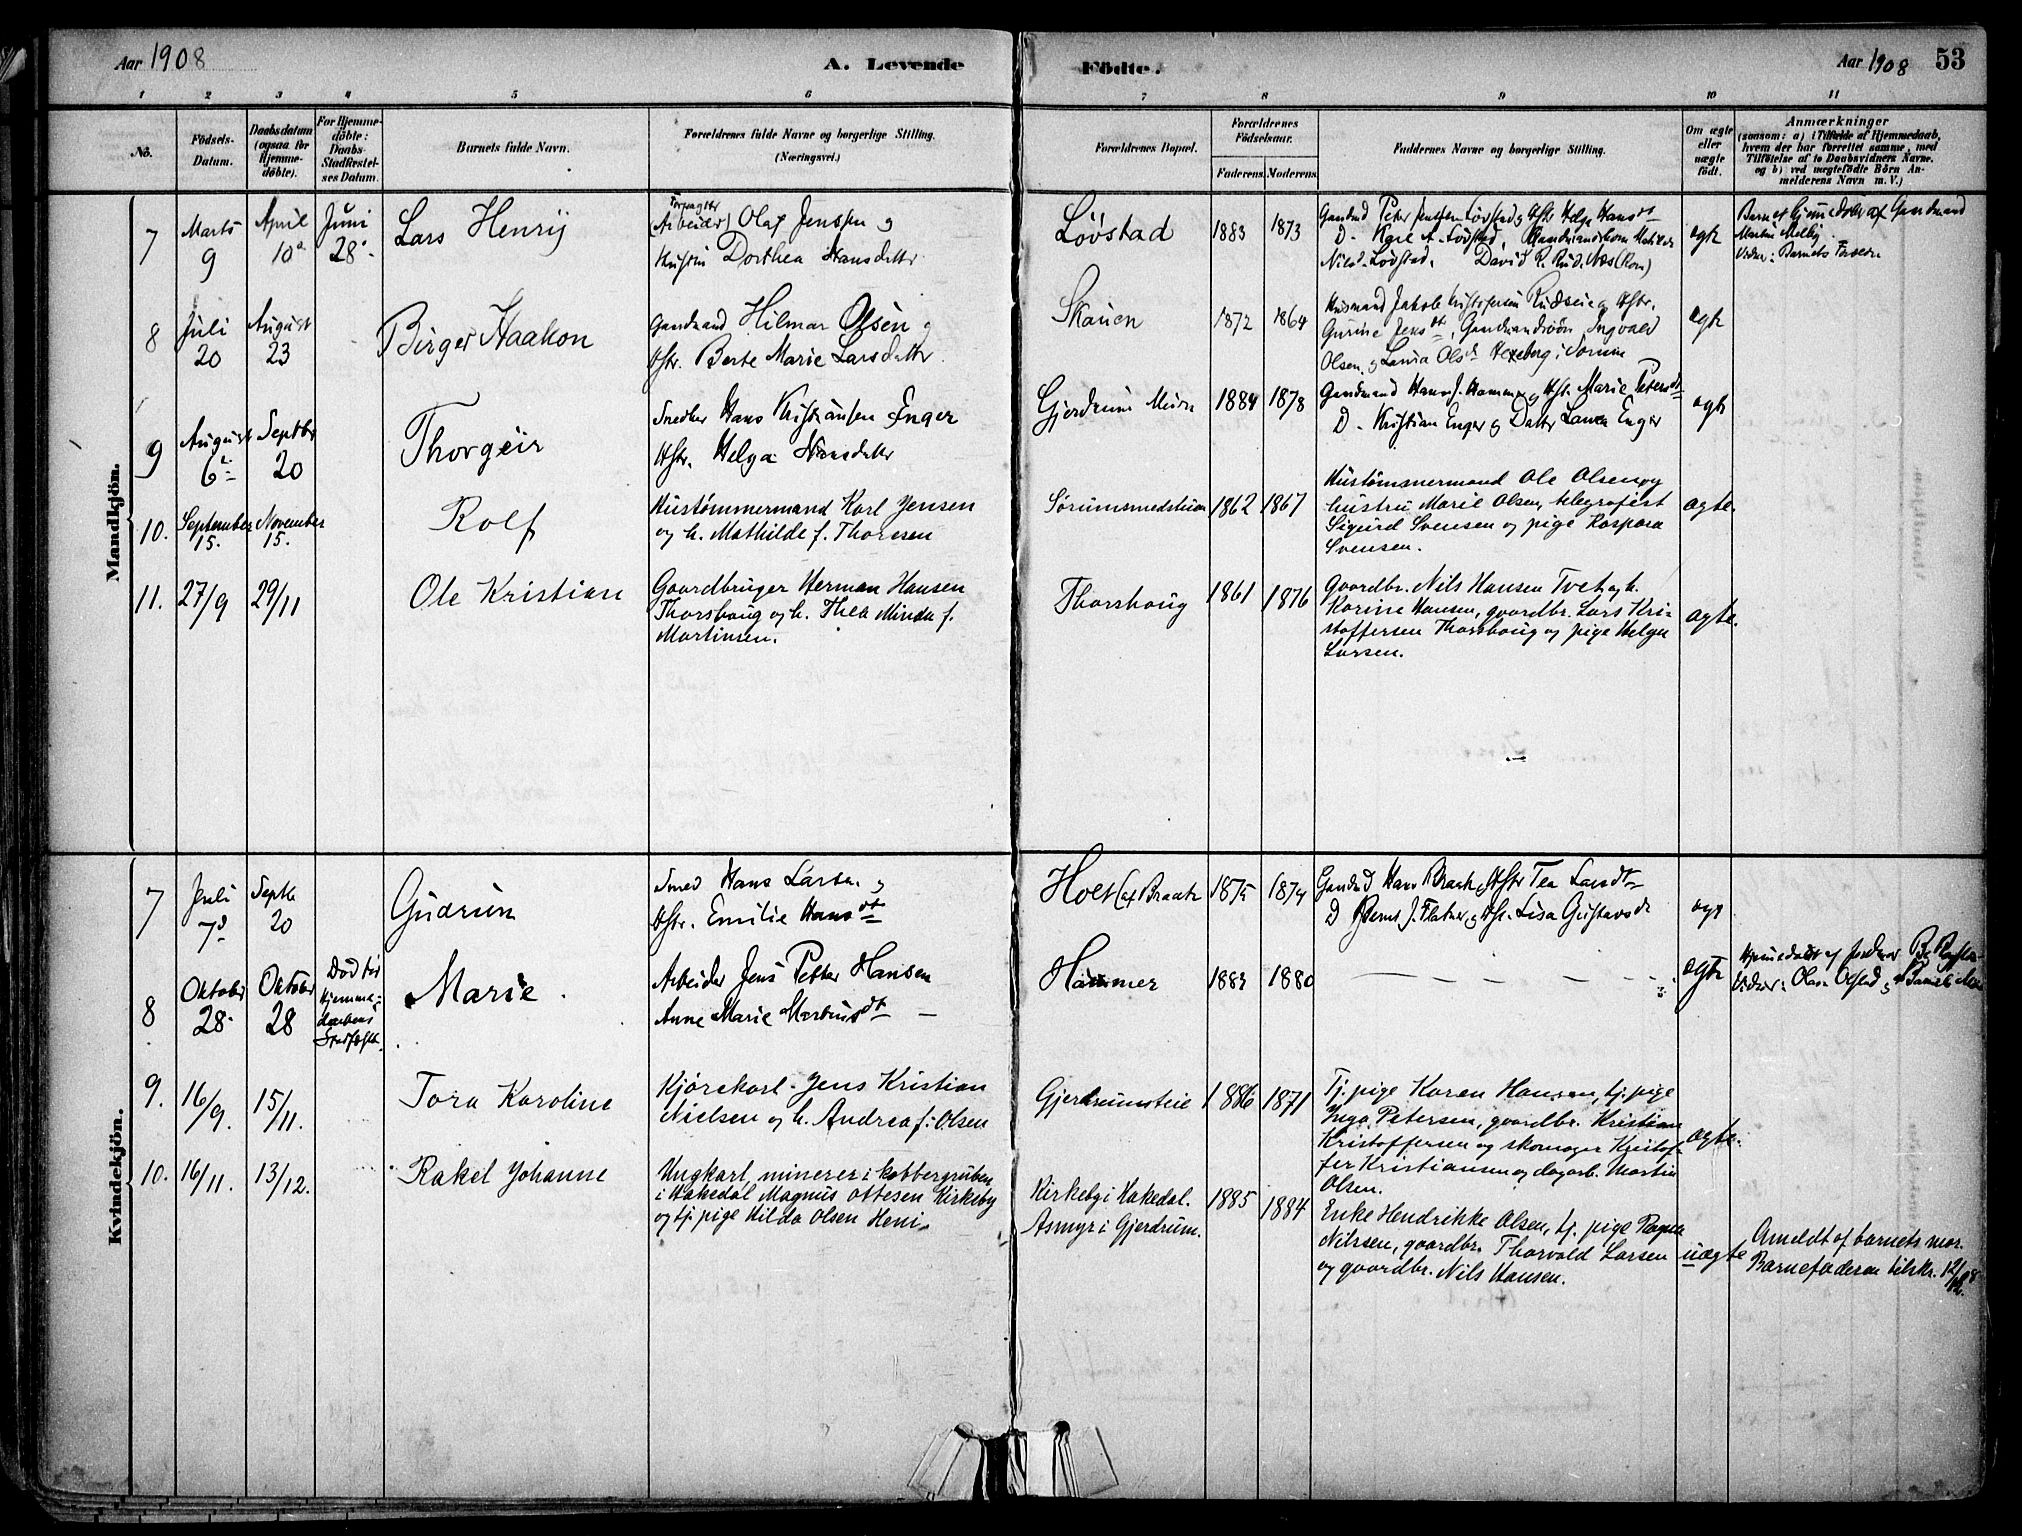 Aar 1908
A. Levende
Födte.
Aar 1908 53
1 2 3 4 5 6 7 8 9 10 11
No.
Födsels-
Datum.
Daabsdatum
(ogsaa for
Hjemme-
döbte).
For Hjemme-
döbte:
Daabs-
Stadfæstel-
ses Datum.
Barnets fulde Navn.
Forældrenes fulde Navne og borgerlige Stilling.
(Næringsvei.)
Forældrenes Bopæl.
Forældrenes
Födselsaar.
Faderens. Moderens.
Faddernes Navne og borgerlige Stilling.
Om ægte
eller
uægte
födt.
Anmærkninger
(saasom: a) i Tilfælde af Hjemmedaab,
hvem der har forrettet samme, med
Tilföielse af to Daabsvidners Navne,
og b) ved uægtefödte Börn An-
melderens Navn m. V.)
Mandkjön.
7
Marts
9
April
10
Juni
28
Lars Henrij
Forpagter
(Arbeider) Olaf Jenssen og
Hustru Dorthea Hansdatter
Lövstad
1883
1873
Gaardmd Peter Jenssen Lövstad og Hstr Helga Hansdt
D. Kare A. Lövstad,
Nilsd. Lövstad, David R. Rud. Næs (Rom)
ægte
Barnet hjemmedöbt af Gaardmand
Martin Melby
Vidner: Barnets Forældre
8
Juli
20
August
23
Birger Haakon
Gaardmand Hilmar Olsen og
Hstr. Berte Marie Larsdatter
Skauen
1872
1864
Husmand Jakob Kristofersen Rudseie og Hstr.
Gurine Jensdt, Gaardmandssön Ingvald
Olsen og Laura Olsdt Hexeberg i Sorum
ægte
9
August
6
Septbr
20
Thorgeir
Snedker Hans Kristiansen Enger
Hstr. Helga Hansdatter
Gjerdrum Meieri
1884
1878
Gaardmand Hans J. Hammer og Hstr. Marie Petersdt
D. Kristian Enger og Datter Laura Enger
ægte
10.
September
15.
November
15.
Rolf
Hustømmermand Karl Jensen
og h. Mathilde f. Thoresen
Sørumsmedstuen
1862
1867
Hustømmermand Ole Olsen og
hustru Marie Olsen, telegrafist
Sigurd Svensen og pige Kaspara
Svensen.
ægte.
11.
27/9
29/11
Ole Kristian
Gaardbruger Herman Hansen
Thorshaug og h. Thea Minda f.
Martinsen.
Thorshaug
1861
1876
Gaardbr. Nils Hansen Tvet og h.
Karine Hansen, gaardbr. Lars Kri-
stoffersen Thorshaug og pige Helga
Larsen.
ægte.
Kvindekjön.
7
Juli
7
Septbr
20
Gudrun
Smed Hans Larsen og
Hstr. Emilie Hansdt
Holt (af Braate
1875
1874
Gaardmd Hans Braate og Hstr Tea Larsdt
D Bernt J. Flatner og Hstr. Lisa Gustavsdt
ægte
8
Oktober
28
Oktober
28
Död för
Hjemme-
daabens
Stadfæst.
Marie
Arbeider Jens Petter Hansen
Anne Marie Martinsdt
Hammer
1883
1880
— — — —
ægte
Hjemmedöbt af Jordmor
Vidner: Olava Olstad og
9.
16/9.
15/11.
Tora Karoline
Kjørekarl Jens Kristian
Nielsen og h. Andrea f: Olsen
Gjerdrumsteie
1886
1871
Tj. pige Karen Hansen, tj. pige
Inga Petersen, gaardbr. Kristian
Kristoffersen og skomager Kristof-
fer Kristiansen og dagarb. Martin
Olsen.
ægte.
10.
16/11.
13/12.
Rakel Johanne
Ungkarl, minerer i kobbergruben
i Hakedal Magnus Ottesen Kirkeby
og tj. pige Hilda Olsen Heni.
Kirkeby i Hakedal.
Asmyr i Gjerdrum.
1885
1884
Enke Hendrikke Olsen, tj. pige Ragna
Nilssen, gaardbr. Thorvald Larsen
og gaardbr. Nils Hansen.
uægte
Anmeldt af barnets mor.
Barnefaderen tilskr. 12/12 08.